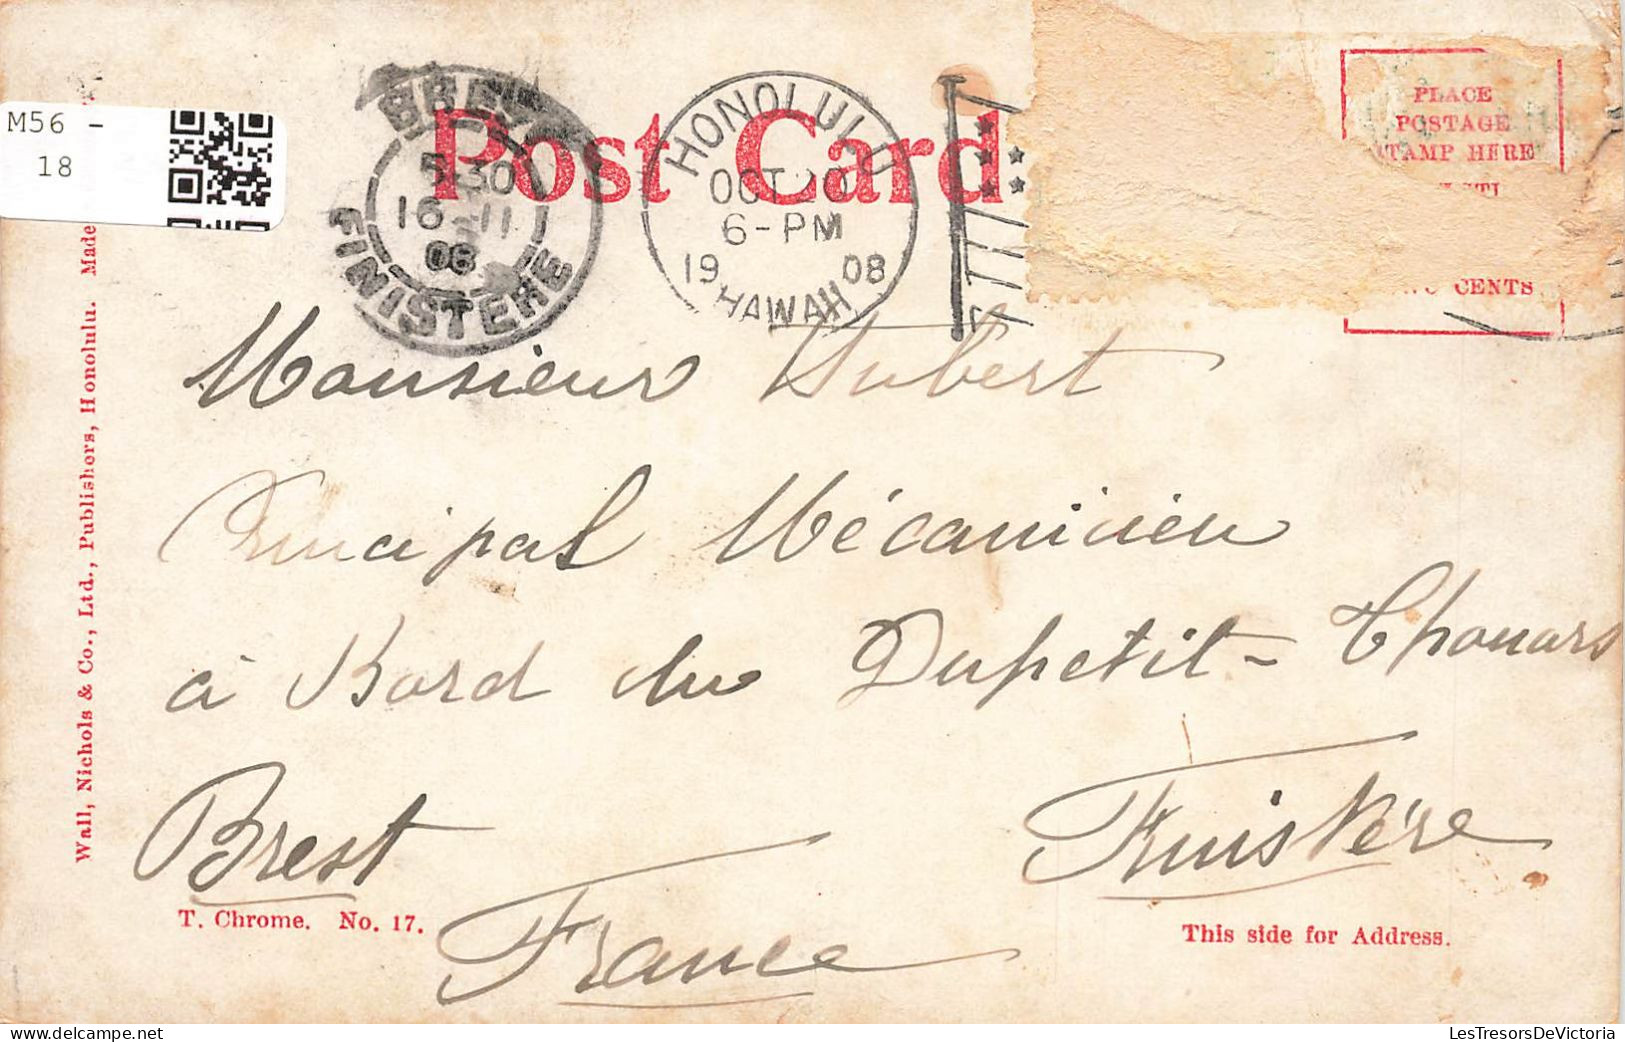 M56 -
18
Post Card
BREST
5 30
16 - 11
08
FINISTERE
HONOLULU
OCT 20
6-PM
1908
HAWAII
PLACE
POSTAGE
STAMP HERE
CENTS
Wall, Nichols & Co., Ltd., Publishers, Honolulu. Made
Monsieur Hubert
Principal Mécanicien
à Bord du Dupetit-Thouars
Brest Finistère
France
T. Chrome. No. 17.
This side for Address.
LesTresorsDeVictoria